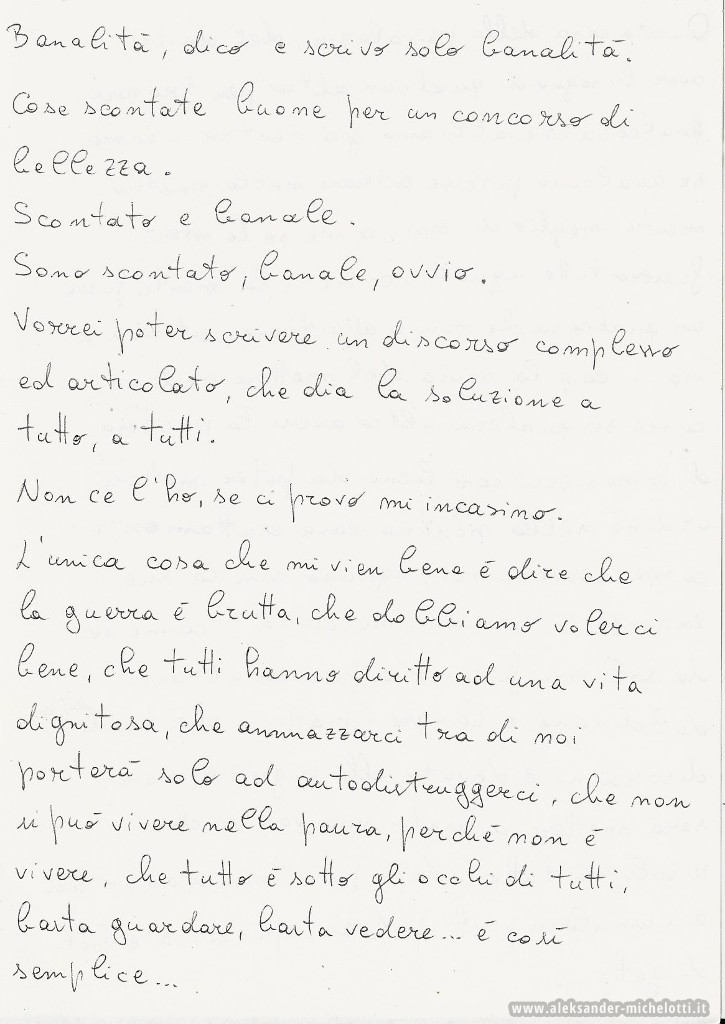 Banalità, dico e scrivo solo banalità.
Cose scontate buone per un concorso di
bellezza.
Scontato e banale.
Sono scontato, banale, ovvio.
Vorrei poter scrivere un discorso complesso
ed articolato, che dia la soluzione a
tutto, a tutti.
Non ce l'ho, se ci provo mi incasino.
L'unica cosa che mi vien bene è dire che
la guerra è brutta, che dobbiamo volerci
bene, che tutti hanno diritto ad una vita
dignitosa, che ammazzarci tra di noi
porterà solo ad autodistruggerci, che non
si può vivere nella paura, perchè non è
vivere, che tutto è sotto gli occhi di tutti,
basta guardare, basta vedere... è così
semplice...
www.aleksander-michelotti.it